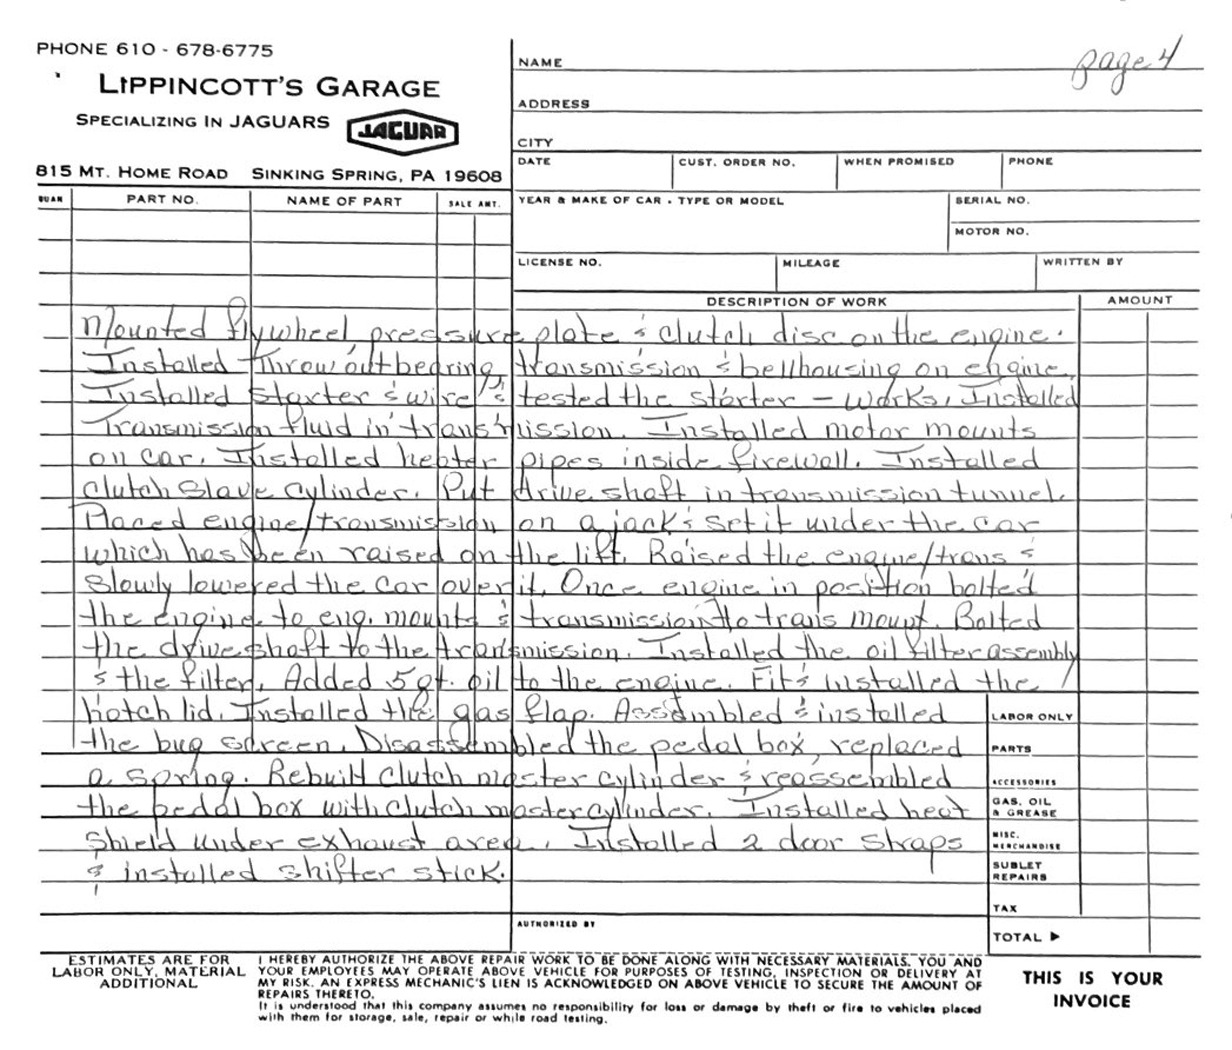 PHONE 610 - 678-6775
LIPPINCOTT'S GARAGE
SPECIALIZING IN JAGUARS
JAGUAR
815 MT. HOME ROAD SINKING SPRING, PA 19608
page 4
NAME
ADDRESS
CITY
DATE CUST. ORDER NO. WHEN PROMISED PHONE
QUAN PART NO. NAME OF PART SALE AMT.
YEAR & MAKE OF CAR - TYPE OR MODEL SERIAL NO.
MOTOR NO.
LICENSE NO. MILEAGE WRITTEN BY
DESCRIPTION OF WORK AMOUNT
Mounted flywheel, pressure plate & clutch disc on the engine.
Installed Throw out bearing, transmission & bellhousing on engine.
Installed starter & wire's & tested the starter - works. Installed
Transmission fluid in transmission. Installed motor mounts
on car. Installed heater pipes inside firewall. Installed
Clutch Slave Cylinder. Put drive shaft in transmission tunnel.
Placed engine/transmission on a jack & set it under the car
which has been raised on the lift. Raised the engine/trans &
slowly lowered the car over it. Once engine in position bolted
the engine to eng. mounts & transmission to trans mount. Bolted
the drive shaft to the transmission. Installed the oil filter assembly
& the filter. Added 5 qt. oil to the engine. Fit & installed the
hatch lid. Installed the gas flap. Assembled & installed
the bug screen. Disassembled the pedal box, replaced
a spring. Rebuilt clutch master cylinder & reassembled
the pedal box with clutch master cylinder. Installed heat
shield under exhaust area. Installed 2 door straps
& installed shifter stick.
LABOR ONLY
PARTS
ACCESSORIES
GAS, OIL
& GREASE
MISC.
MERCHANDISE
SUBLET
REPAIRS
TAX
AUTHORIZED BY
TOTAL ▶
ESTIMATES ARE FOR
LABOR ONLY, MATERIAL
ADDITIONAL
I HEREBY AUTHORIZE THE ABOVE REPAIR WORK TO BE DONE ALONG WITH NECESSARY MATERIALS. YOU AND
YOUR EMPLOYEES MAY OPERATE ABOVE VEHICLE FOR PURPOSES OF TESTING, INSPECTION OR DELIVERY AT
MY RISK. AN EXPRESS MECHANIC'S LIEN IS ACKNOWLEDGED ON ABOVE VEHICLE TO SECURE THE AMOUNT OF
REPAIRS THERETO.
It is understood that this company assumes no responsibility for loss or damage by theft or fire to vehicles placed
with them for storage, sale, repair or while road testing.
THIS IS YOUR
INVOICE